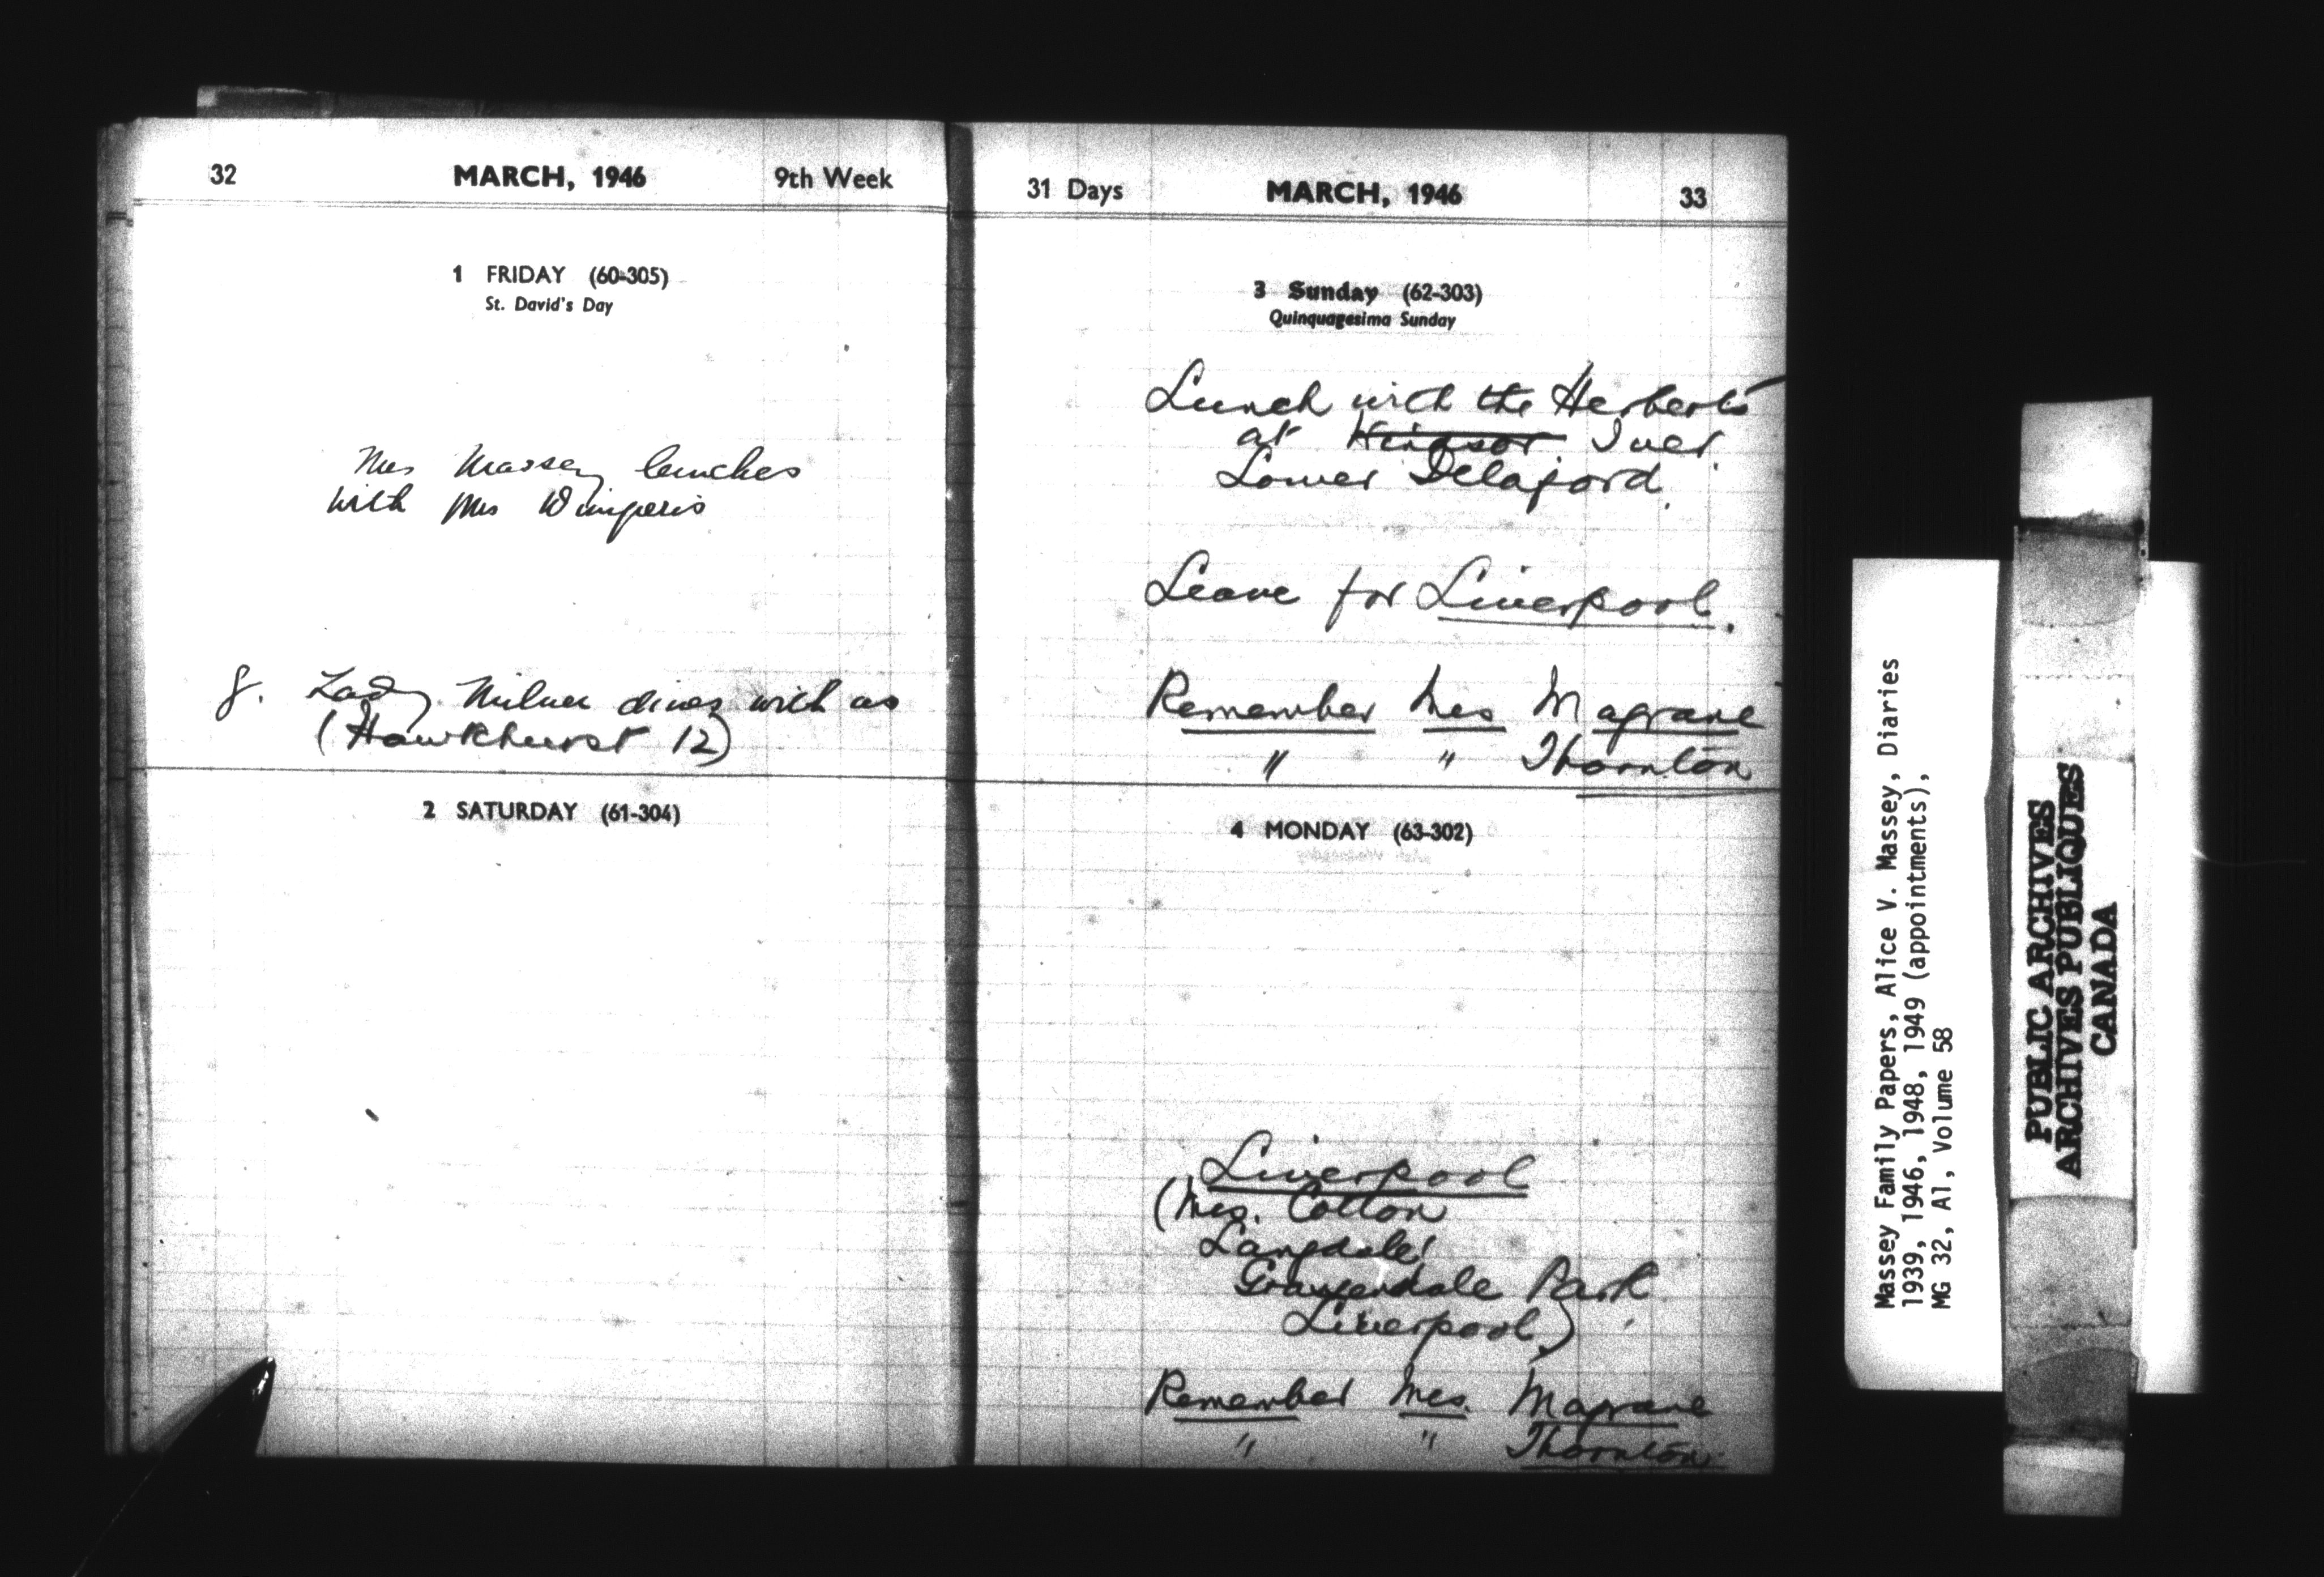 32 MARCH, 1946 9th Week
1 FRIDAY (60-305)
St. David's Day
Mrs Massey lunches
with Mrs Wimperis
8. Lady Milner dines with us
(Hawkhurst 12)
2 SATURDAY (61-304)
31 Days MARCH, 1946 33
3 Sunday (62-303)
Quinquagesima Sunday
Lunch with the Herberts
at Windsor Iver.
Lower Delaford.
Leave for Liverpool.
Remember Mrs Magrane
" " Thornton
4 MONDAY (63-302)
Liverpool
(Mrs. Cotton
Langdale
Grassendale Park
Liverpool)
Remember Mrs. Magrane
" " Thornton
Massey Family Papers, Alice V. Massey, Diaries
1939, 1946, 1948, 1949 (appointments),
MG 32, A1, Volume 58
PUBLIC ARCHIVES
ARCHIVES PUBLIQUES
CANADA